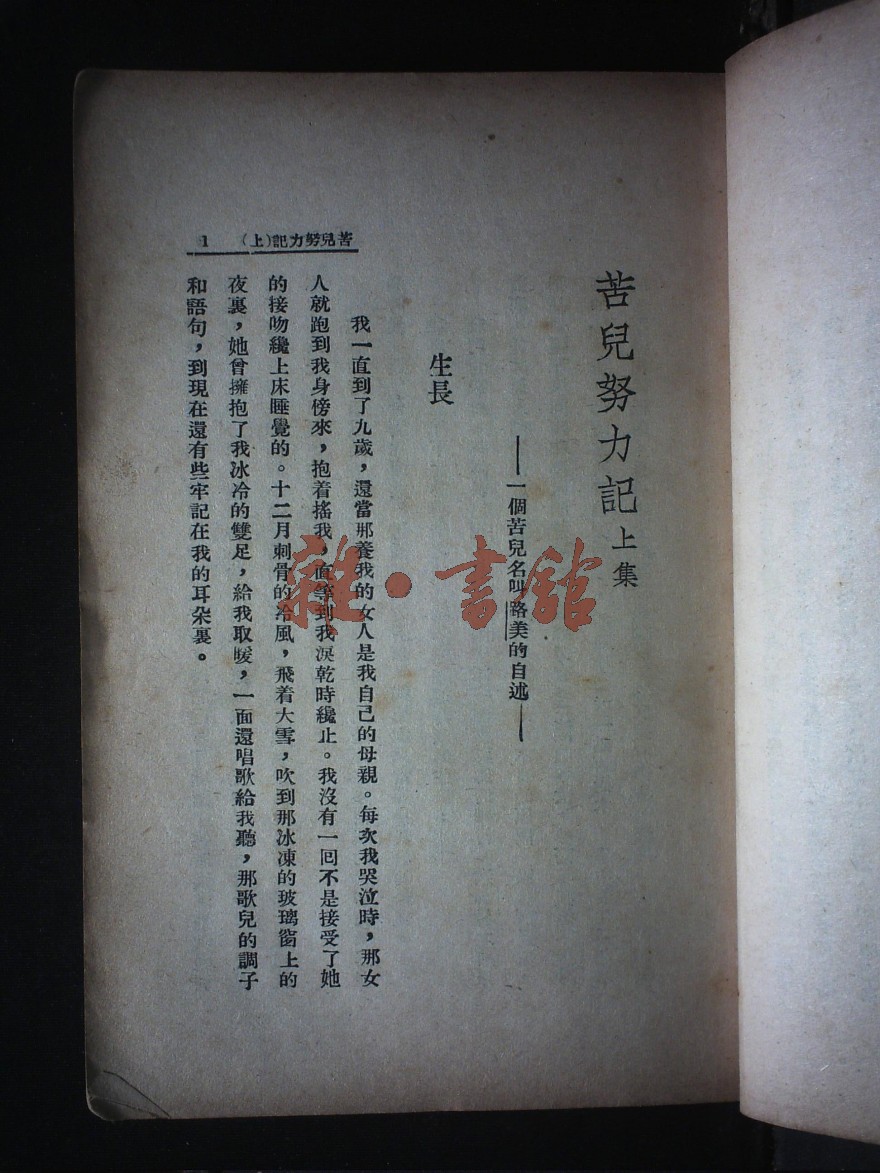 苦兒努力記 上集
——一個苦兒名叫路美的自述——
生長
我一直到了九歲，還當那養我的女人是我自己的母親。每次我哭泣時，那女
人就跑到我身傍來，抱着搖我，直等到我淚乾時纔止。我沒有一回不是接受了她
的接吻纔上床睡覺的。十二月刺骨的冷風，飛着大雪，吹到那冰凍的玻璃窗上的
夜裏，她曾擁抱了我冰冷的雙足，給我取暖，一面還唱歌給我聽，那歌兒的調子
和語句，到現在還有些牢記在我的耳朵裏。
苦兒努力記(上) 1
雜·書館